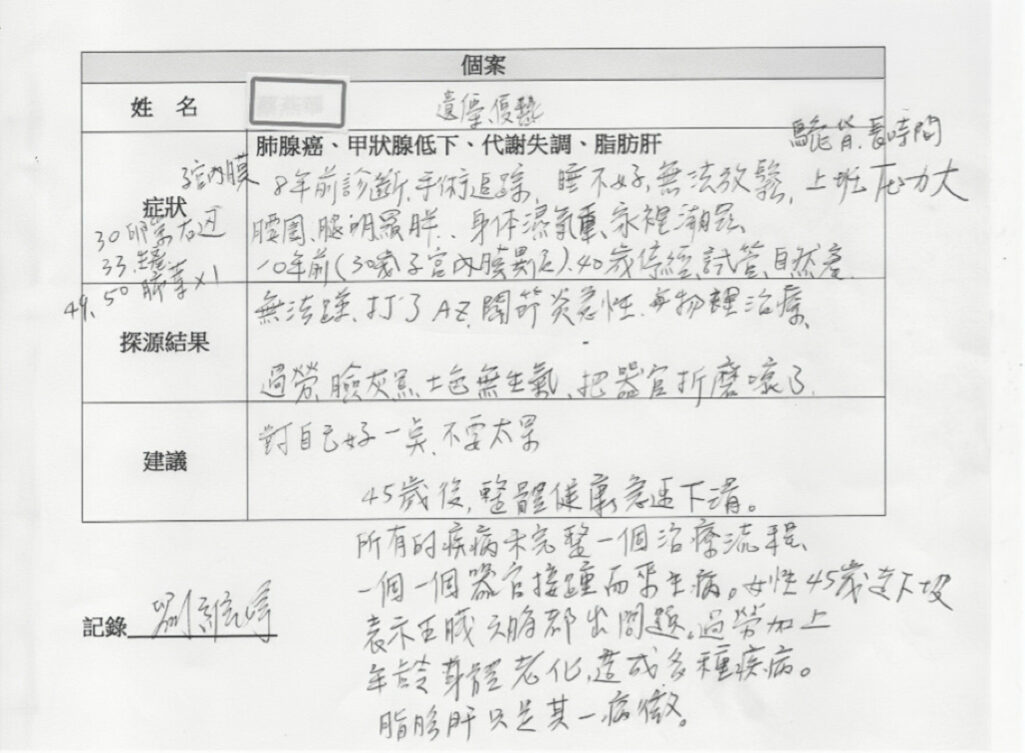 個案
姓 名
遺傳、優勢
駝背、長時間
肺腺癌、甲狀腺低下、代謝失調、脂肪肝
子宮內膜
症狀
8年前診斷、手術追蹤、睡不好、無法放鬆、上班压力大
30卵巢右边
腰圍、腿明顯胖、身体濕氣重、家裡潮濕、
33
10年前(30歲子宮內膜異位)、40歲停經、試管、自然產
49、50 肺葉x1
無法蹲、打了AZ、關節炎急性、每物理治療、
探源結果
過勞、臉灰黑、土色無生氣、把器官折磨壞了
建議
對自己好一点、不要太累
45歲後,整體健康急速下滑。
所有的疾病未完整一個治療流程、
一個一個器官接踵而來生病。女性45歲走下坡
記錄
表示五臟六腑都出問題。過勞加上
年齡身體老化,造成多種疾病。
脂肪肝只是其一病徵。